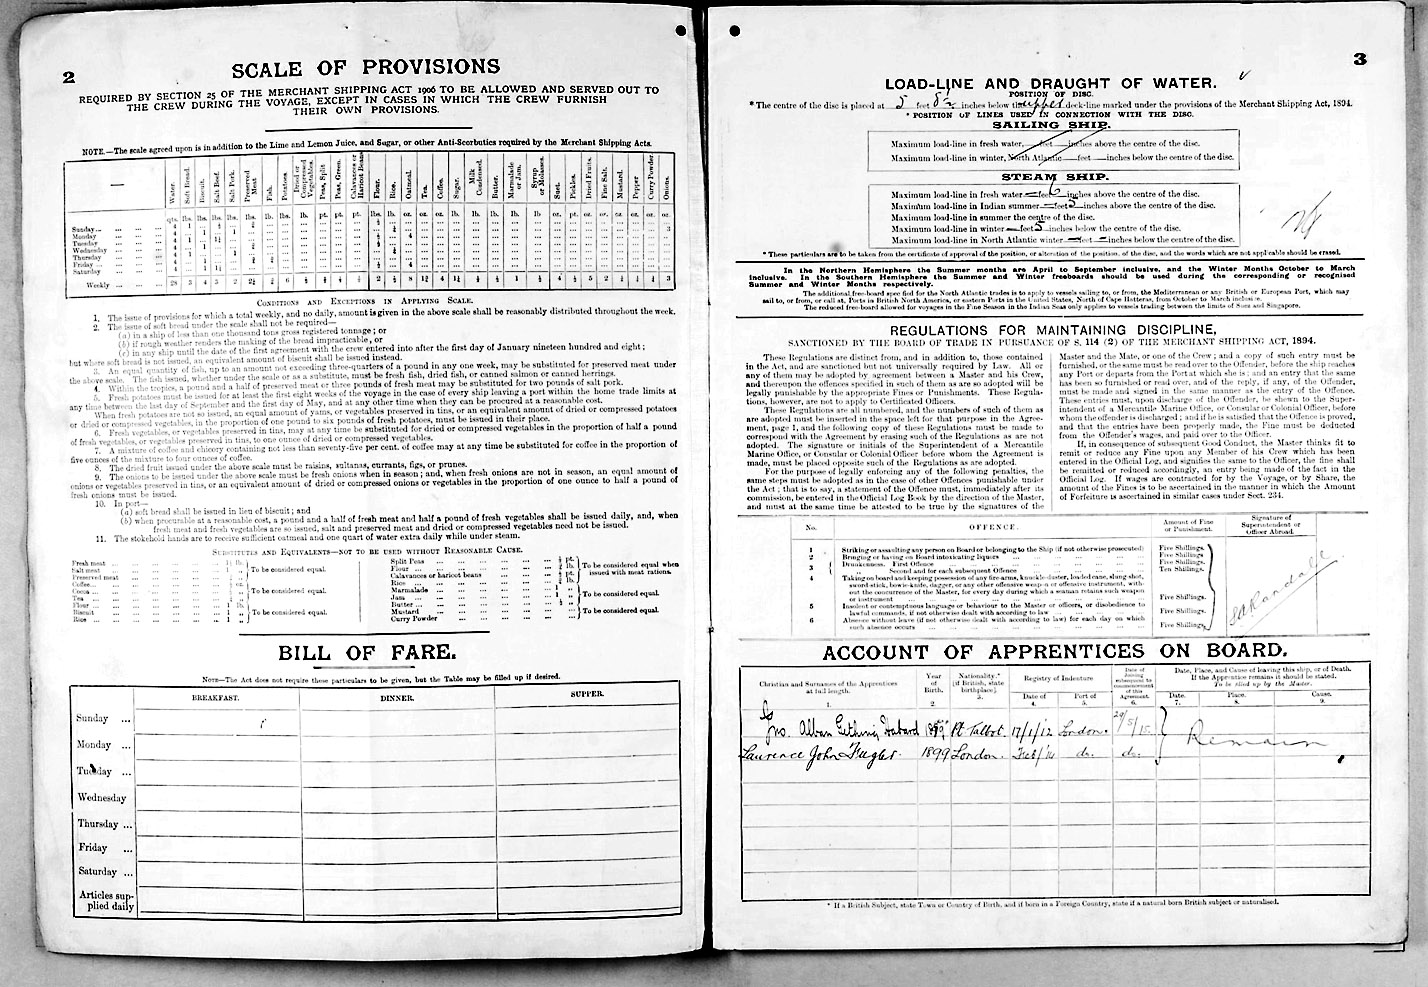 2
SCALE OF PROVISIONS
REQUIRED BY SECTION 25 OF THE MERCHANT SHIPPING ACT 1906 TO BE ALLOWED AND SERVED OUT TO
THE CREW DURING THE VOYAGE, EXCEPT IN CASES IN WHICH THE CREW FURNISH
THEIR OWN PROVISIONS.
NOTE.—The scale agreed upon is in addition to the Lime and Lemon Juice, and Sugar, or other Anti-Scorbutics required by the Merchant Shipping Acts.
Water. Soft Bread. Biscuit. Salt Beef. Salt Pork. Preserved Meat Fish. Potatoes. Dried or Compressed Vegetables. Peas, Split Peas, Green. Calavances or Haricot Beans Flour. Rice. Oatmeal. Tea. Coffee. Sugar. Milk Condensed. Butter. Marmalade or Jam. Syrup or Molasses. Suet. Pickles. Dried Fruits. Fine Salt. Mustard. Pepper Curry Powder Onions.
qts. lbs. lbs. lbs. lbs. lbs. lb. lbs. lb. pt. pt. pt. lbs. lb. oz. oz. oz. lb. lb. lb. lb. lb. oz. pt. oz. oz. oz. oz. oz. oz.
Sunday
Monday
Tuesday
Wednesday
Thursday
Friday
Saturday
Weekly
CONDITIONS AND EXCEPTIONS IN APPLYING SCALE.
1. The issue of provisions for which a total weekly, and no daily, amount is given in the above scale shall be reasonably distributed throughout the week.
2. The issue of soft bread under the scale shall not be required—
(a) in a ship of less than one thousand tons gross registered tonnage; or
(b) if rough weather renders the making of the bread impracticable, or
(c) in any ship until the date of the first agreement with the crew entered into after the first day of January nineteen hundred and eight;
but where soft bread is not issued, an equivalent amount of biscuit shall be issued instead.
3. An equal quantity of fish, up to an amount not exceeding three-quarters of a pound in any one week, may be substituted for preserved meat under
the above scale. The fish issued, whether under the scale or as a substitute, must be fresh fish, dried fish, or canned salmon or canned herrings.
4. Within the tropics, a pound and a half of preserved meat or three pounds of fresh meat may be substituted for two pounds of salt pork.
5. Fresh potatoes must be issued for at least the first eight weeks of the voyage in the case of every ship leaving a port within the home trade limits at
any time between the last day of September and the first day of May, and at any other time when they can be procured at a reasonable cost.
When fresh potatoes are not so issued, an equal amount of yams, or vegetables preserved in tins, or an equivalent amount of dried or compressed potatoes
or dried or compressed vegetables, in the proportion of one pound to six pounds of fresh potatoes, must be issued in their place.
6. Fresh vegetables, or vegetables preserved in tins, may at any time be substituted for dried or compressed vegetables in the proportion of half a pound
of fresh vegetables, or vegetables preserved in tins, to one ounce of dried or compressed vegetables.
7. A mixture of coffee and chicory containing not less than seventy-five per cent. of coffee may at any time be substituted for coffee in the proportion of
five ounces of the mixture to four ounces of coffee.
8. The dried fruit issued under the above scale must be raisins, sultanas, currants, figs, or prunes.
9. The onions to be issued under the above scale must be fresh onions when in season; and, when fresh onions are not in season, an equal amount of
onions or vegetables preserved in tins, or an equivalent amount of dried or compressed onions or vegetables in the proportion of one ounce to half a pound of
fresh onions must be issued.
10. In port—
(a) soft bread shall be issued in lieu of biscuit; and
(b) when procurable at a reasonable cost, a pound and a half of fresh meat and half a pound of fresh vegetables shall be issued daily, and, when
fresh meat and fresh vegetables are so issued, salt and preserved meat and dried or compressed vegetables need not be issued.
11. The stokehold hands are to receive sufficient oatmeal and one quart of water extra daily while under steam.
SUBSTITUTES AND EQUIVALENTS—NOT TO BE USED WITHOUT REASONABLE CAUSE.
Fresh meat
Salt meat
Preserved meat
To be considered equal.
Coffee
Cocoa
Tea
To be considered equal.
Flour
Biscuit
Rice
To be considered equal.
Split Peas
Flour
Calavances or haricot beans
Rice
To be considered equal when issued with meat rations.
Marmalade
Jam
Butter
To be considered equal.
Mustard
Curry Powder
To be considered equal.
BILL OF FARE.
NOTE—The Act does not require these particulars to be given, but the Table may be filled up if desired.
BREAKFAST. DINNER. SUPPER.
Sunday
Monday
Tuesday
Wednesday
Thursday
Friday
Saturday
Articles supplied daily
3
LOAD-LINE AND DRAUGHT OF WATER.
POSITION OF DISC.
* The centre of the disc is placed at 5 feet 8½ inches below the upper deck-line marked under the provisions of the Merchant Shipping Act, 1894.
* POSITION OF LINES USED IN CONNECTION WITH THE DISC.
SAILING SHIP.
Maximum load-line in fresh water, feet inches above the centre of the disc.
Maximum load-line in winter, North Atlantic feet inches below the centre of the disc.
STEAM SHIP.
Maximum load-line in fresh water — feet 6 inches above the centre of the disc.
Maximum load-line in Indian summer — feet 5 inches above the centre of the disc.
Maximum load-line in summer the centre of the disc.
Maximum load-line in winter — feet 5 inches below the centre of the disc.
Maximum load-line in North Atlantic winter — feet — inches below the centre of the disc.
* These particulars are to be taken from the certificate of approval of the position, or alteration of the position, of the disc, and the words which are not applicable should be erased.
In the Northern Hemisphere the Summer months are April to September inclusive, and the Winter Months October to March
inclusive. In the Southern Hemisphere the Summer and Winter freeboards should be used during the corresponding or recognised
Summer and Winter Months respectively.
The additional free-board specified for the North Atlantic trades is to apply to vessels sailing to, or from, the Mediterranean or any British or European Port, which may
sail to, or from, or call at, Ports in British North America, or eastern Ports in the United States, North of Cape Hatteras, from October to March inclusive.
The reduced free-board allowed for voyages in the Fine Season in the Indian Seas only applies to vessels trading between the limits of Suez and Singapore.
REGULATIONS FOR MAINTAINING DISCIPLINE,
SANCTIONED BY THE BOARD OF TRADE IN PURSUANCE OF S. 114 (2) OF THE MERCHANT SHIPPING ACT, 1894.
These Regulations are distinct from, and in addition to, those contained
in the Act, and are sanctioned but not universally required by Law. All or
any of them may be adopted by agreement between a Master and his Crew,
and thereupon the offences specified in such of them as are so adopted will be
legally punishable by the appropriate Fines or Punishments. These Regulations,
however, are not to apply to Certificated Officers.
These Regulations are all numbered, and the numbers of such of them as
are adopted must be inserted in the space left for that purpose in the Agreement,
page 1, and the following copy of these Regulations must be made to
correspond with the Agreement by erasing such of the Regulations as are not
adopted. The signature or initials of the Superintendent of a Mercantile
Marine Office, or Consular or Colonial Officer before whom the Agreement is
made, must be placed opposite such of the Regulations as are adopted.
For the purpose of legally enforcing any of the following penalties, the
same steps must be adopted as in the case of other Offences punishable under
the Act; that is to say, a statement of the Offence must, immediately after its
commission, be entered in the Official Log Book by the direction of the Master,
and must at the same time be attested to be true by the signatures of the
Master and the Mate, or one of the Crew; and a copy of such entry must be
furnished, or the same must be read over to the Offender, before the ship reaches
any Port or departs from the Port at which she is; and an entry that the same
has been so furnished or read over, and of the reply, if any, of the Offender,
must be made and signed in the same manner as the entry of the Offence.
These entries must, upon discharge of the Offender, be shewn to the Superintendent
of a Mercantile Marine Office, or Consular or Colonial Officer, before
whom the offender is discharged; and if he is satisfied that the Offence is proved,
and that the entries have been properly made, the Fine must be deducted
from the Offender's wages, and paid over to the Officer.
If, in consequence of subsequent Good Conduct, the Master thinks fit to
remit or reduce any Fine upon any Member of his Crew which has been
entered in the Official Log, and signifies the same to the Officer, the fine shall
be remitted or reduced accordingly, an entry being made of the fact in the
Official Log. If wages are contracted for by the Voyage, or by Share, the
amount of the Fines is to be ascertained in the manner in which the Amount
of Forfeiture is ascertained in similar cases under Sect. 234.
No. OFFENCE. Amount of Fine or Punishment. Signature of Superintendent or Officer Abroad.
1 Striking or assaulting any person on Board or belonging to the Ship (if not otherwise prosecuted) Five Shillings.
2 Bringing or having on Board intoxicating liquors Five Shillings.
3 Drunkenness. First Offence Five Shillings.
Second and for each subsequent Offence Ten Shillings.
4 Taking on board and keeping possession of any fire-arms, knuckle-duster, loaded cane, slung shot,
sword stick, bowie-knife, dagger, or any other offensive weapon or offensive instrument, without
the concurrence of the Master, for every day during which a seaman retains such weapon
or instrument Five Shillings.
5 Insolent or contemptuous language or behaviour to the Master or officers, or disobedience to
lawful commands, if not otherwise dealt with according to law Five Shillings.
6 Absence without leave (if not otherwise dealt with according to law) for each day on which
such absence occurs Five Shillings.
ACCOUNT OF APPRENTICES ON BOARD.
Christian and Surnames of the Apprentices at full length. 1. Year of Birth. 2. Nationality.* [if British, state birthplace]. 3. Registry of Indenture Date of 4. Port of 5. Date of Joining subsequent to commencement of this Agreement. 6. Date, Place, and Cause of leaving this ship, or of Death. If the Apprentice remains it should be stated. To be filled up by the Master. Date. 7. Place. 8. Cause. 9.
Jno. Alban Gething Pt Talbot. 17/1/12 London. 29/5/15 Remain
Laurence John 1899 London. Feb/14 do. do.
* If a British Subject, state Town or Country of Birth, and if born in a Foreign Country, state if a natural born British subject or naturalised.